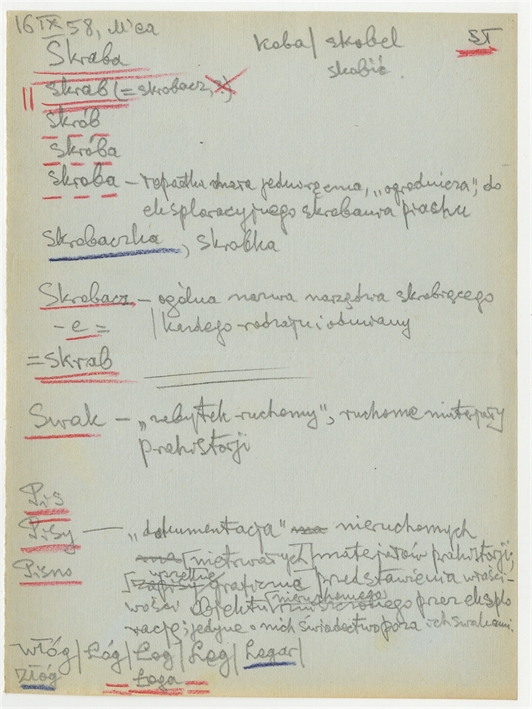 16 IX 58, Nica
koba/ skobel
ST
Skraba
skobić.
skrab (= skrobacz, ?)
skrób
skróba
skroba – łopatka mała jednoręczna, „ogrodnicza”, do
eksploracyjnego skrobania piachu
Skrobaczka, skrobka
Skrobacz – ogólna nazwa narzędzia skrobiącego
– e = | każdego rodzaju i odmiany
= Skrab
Swak – „zabytek ruchomy”, ruchome materjały
prahistorji
Pis
Pisy – „dokumentacja” ma nieruchomych
ma [nietrwałych] materjałów prahistorji;
Pismo
[zapisy wszelkie graficzne przedstawienia właści-
wości objektu nieruchomego zniszczonego przez eksplo-
rację; jedyne o nich świadectwo poza ich swakami.
Włóg/ Łóg/ Log/ Łog/ Legar/
Złóg
Loga